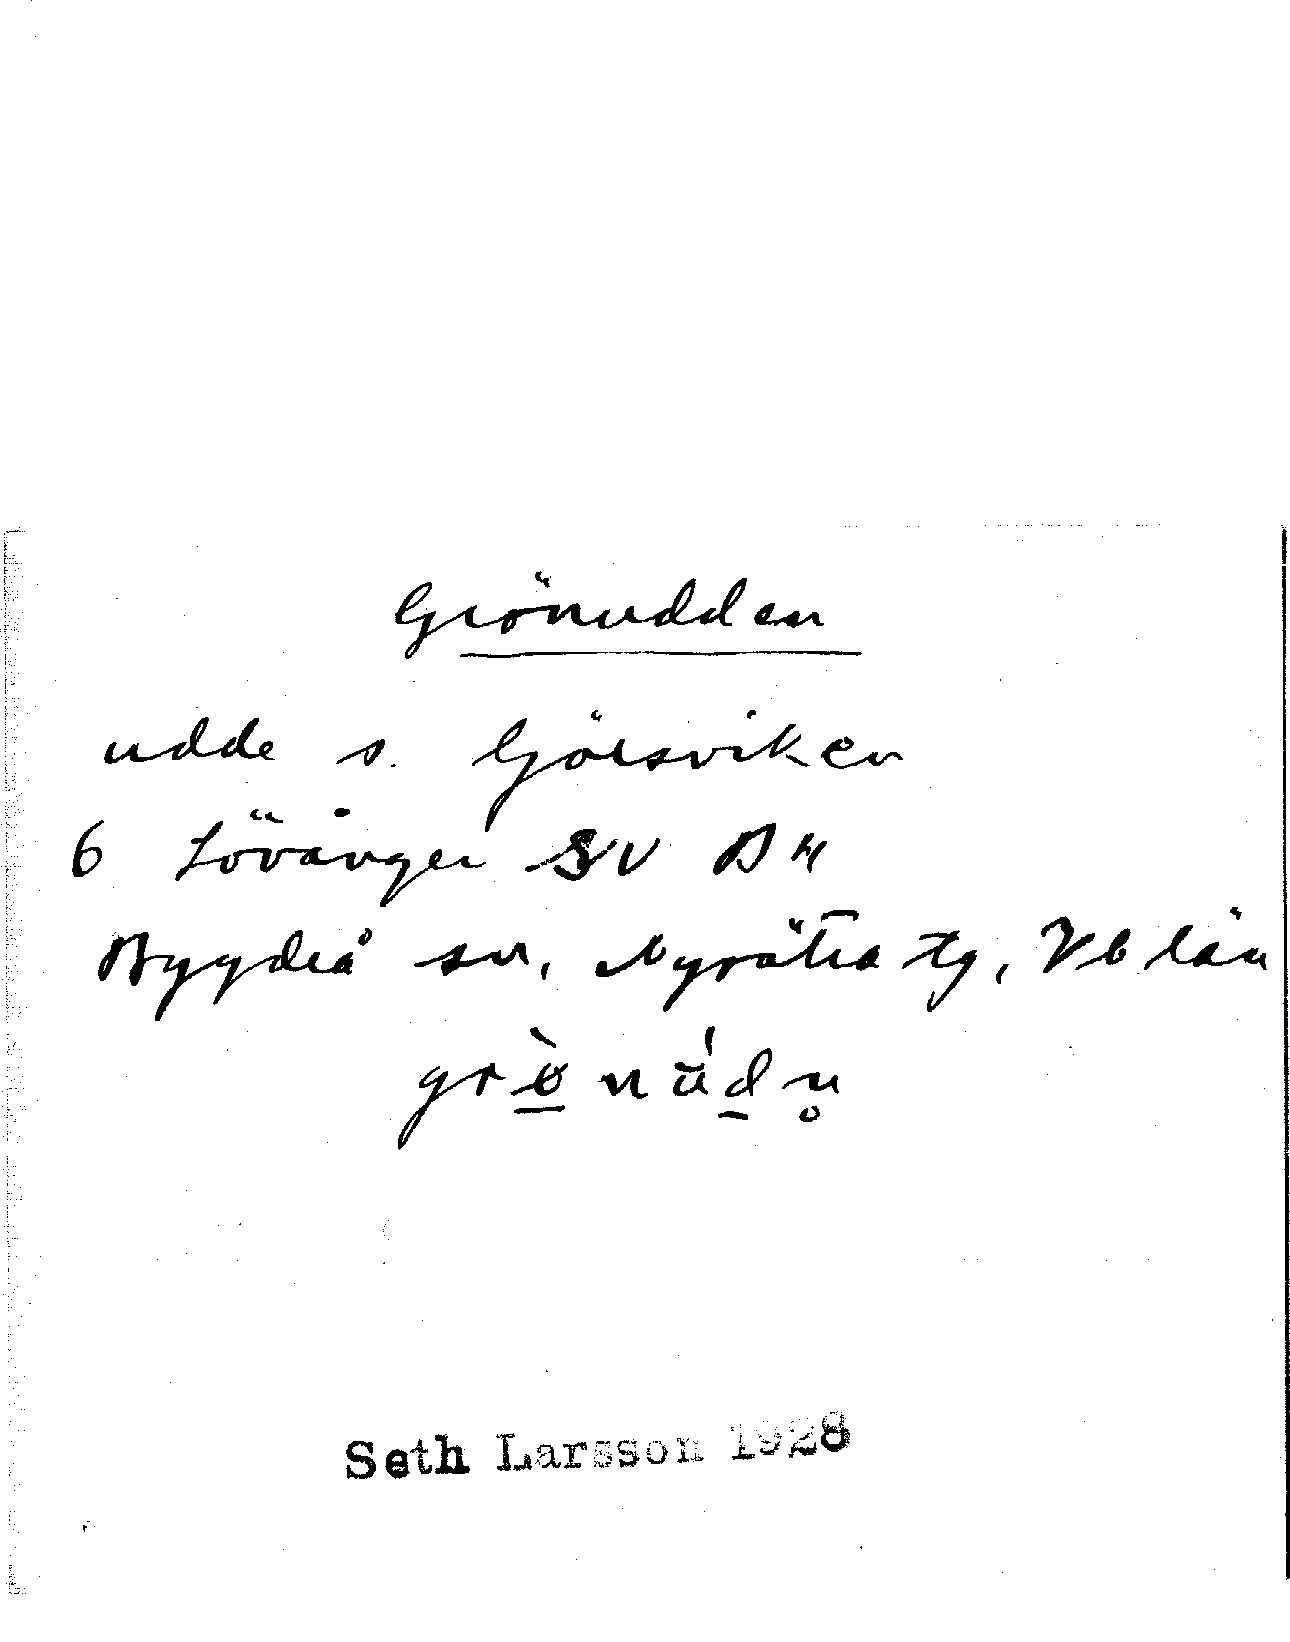 Grönudden
udde s. Görsviken
6 Lövånger SV B4
Bygdeå sn, Nysätra tg, Vb län
grø̀núdn̥
Seth Larsson 1928